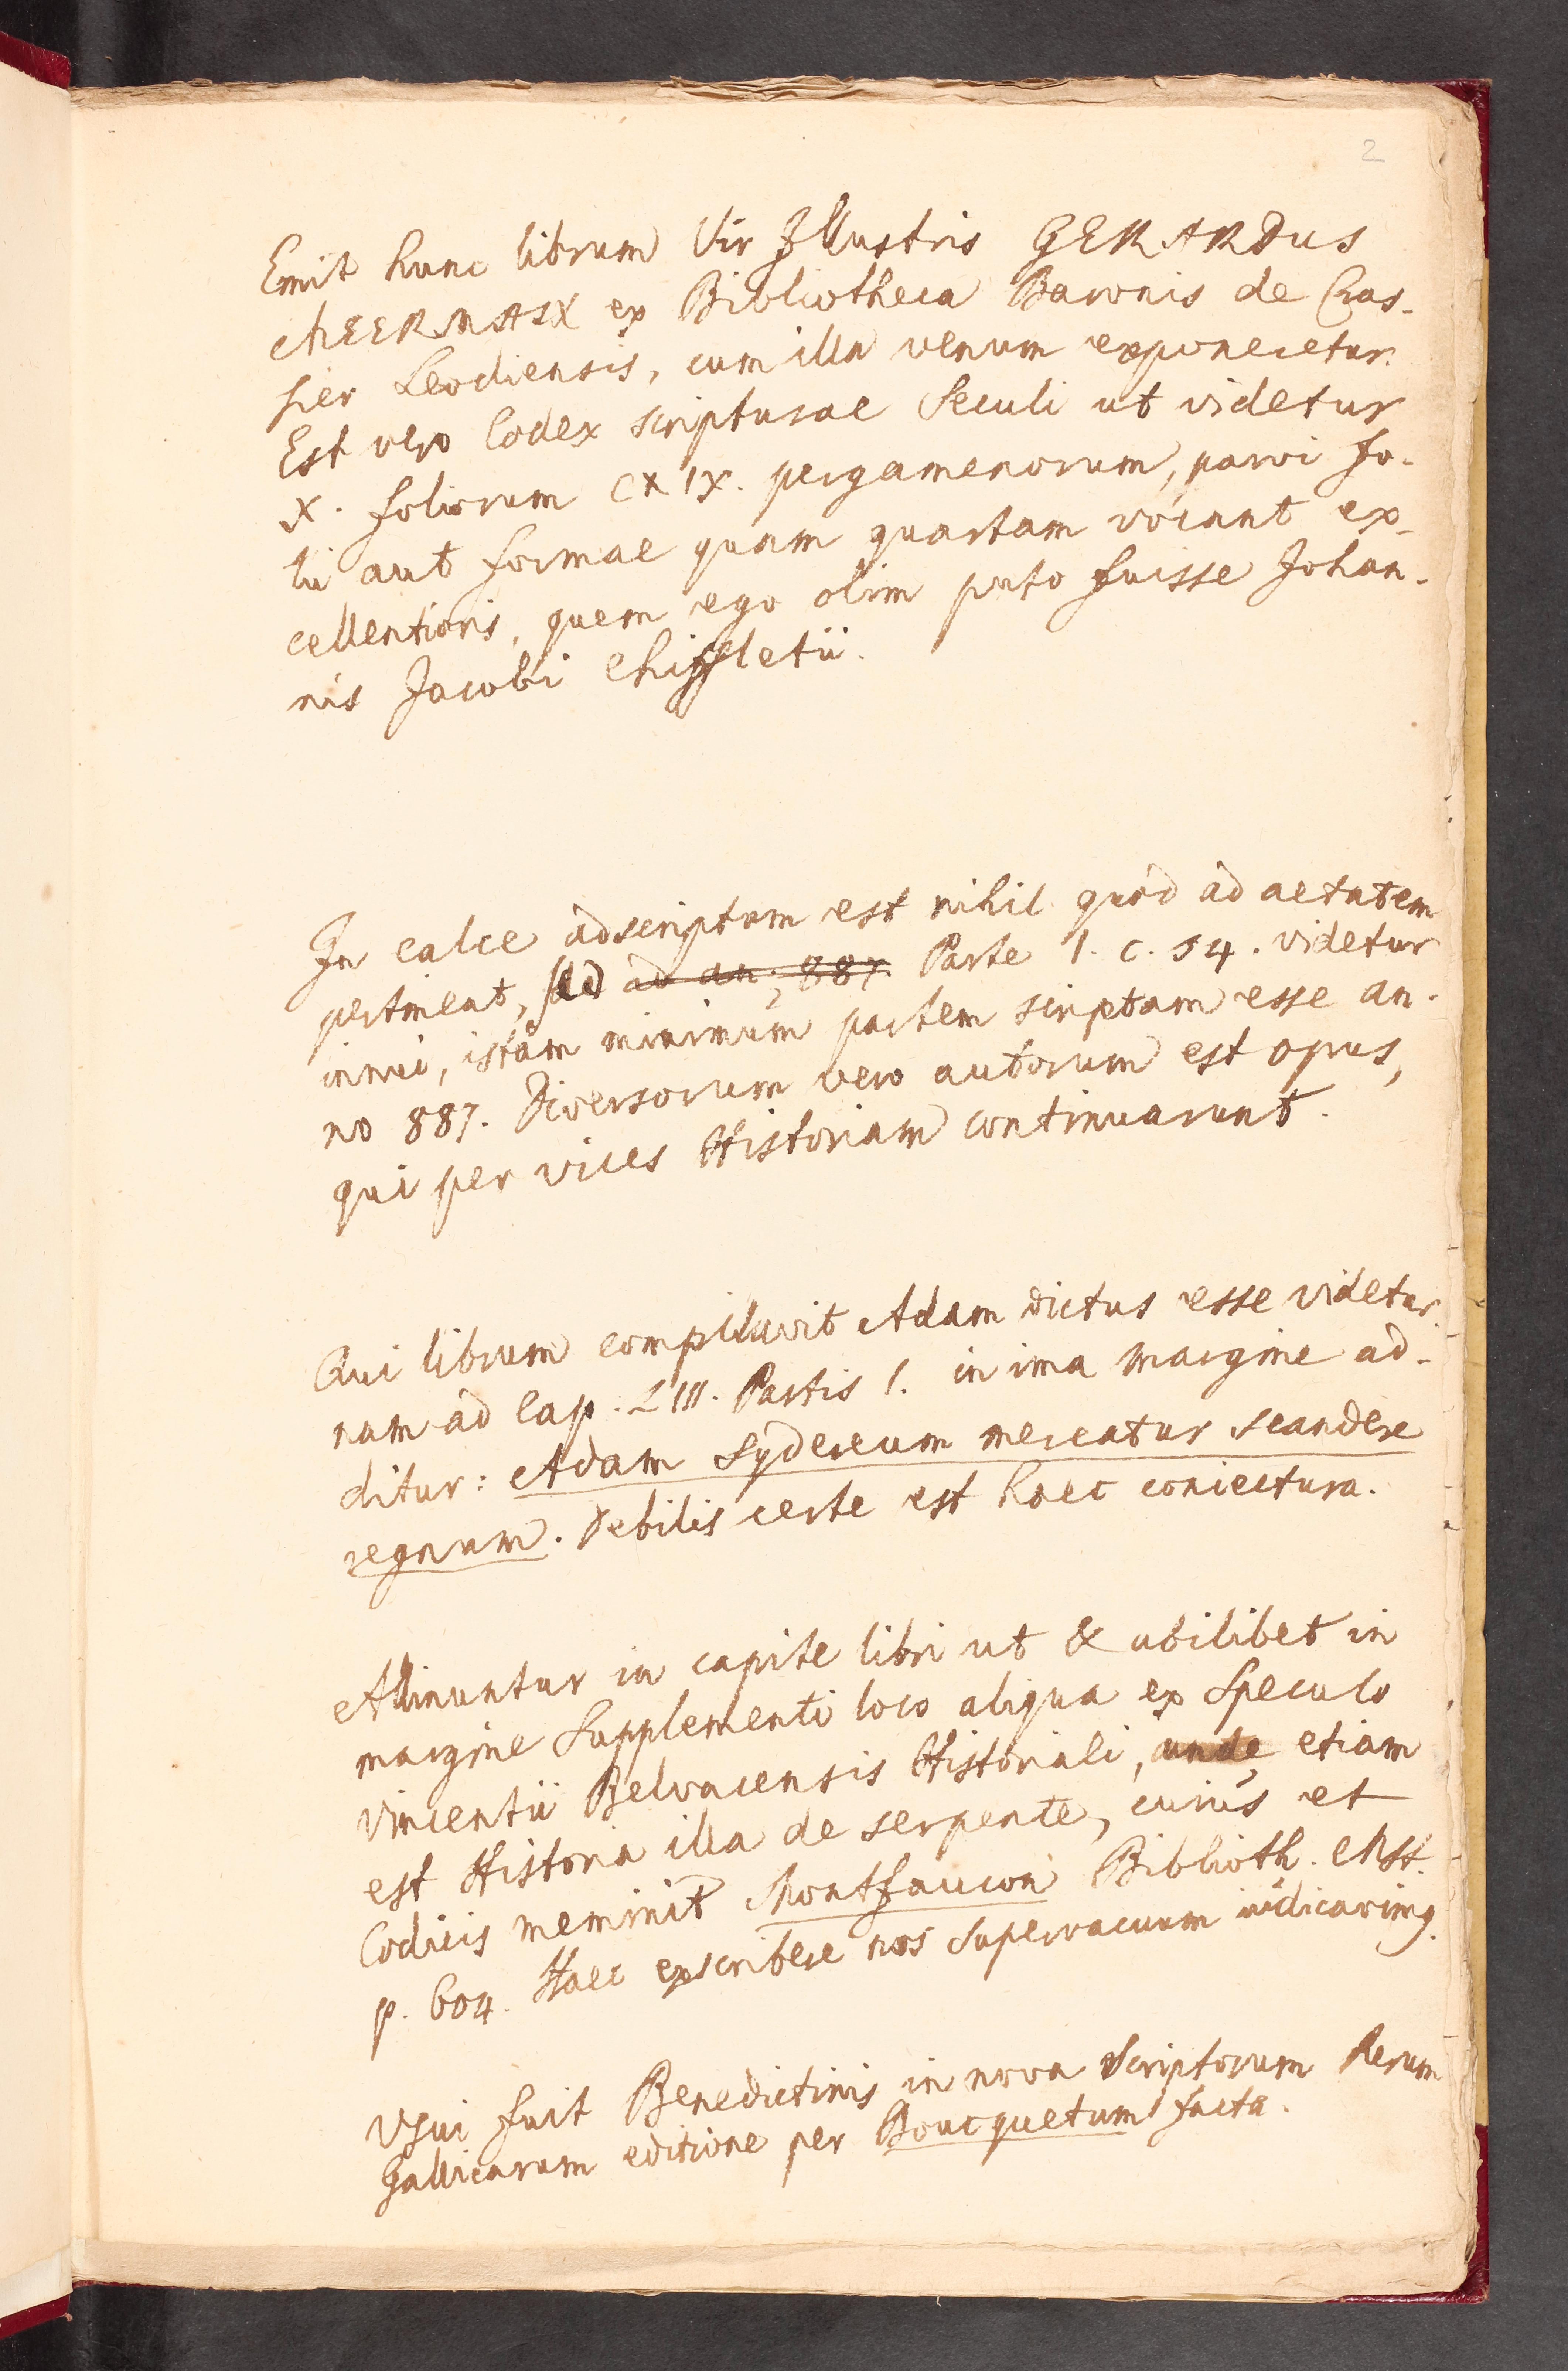 2
Emit hunc librum Vir Illustris GERARDUS
MEERMAN ex Bibliotheca Baronis de Cras-
sier Leodiensis, cum illa venum exponeretur.
Est vero Codex scripturae Seculi ut videtur
X. foliorum CXIX. pergamenorum, parvi fo-
lii aut formae quam quartam vocant ex-
cellentioris, quem ego olim puto fuisse Johan-
nis Jacobi Chiffletii.
In calce adscriptum est nihil quod ad aetatem
pertineat, sed ad an; 887. Parte I. c. 54. videtur
innui, istam minimum partem scriptam esse an-
no 887. Diversorum vero autorum est opus,
qui per vices Historiam continuarunt.
Qui librum compilavit Adam dictus esse videtur.
nam ad Cap. LIII. Partis I. in ima margine ad-
ditur: Adam Sydereum mereatur scandere
regnum. Debilis certe est haec coniectura.
Allinuntur in capite libri ut & ubilibet in
margine Supplementi loco aliqua ex Speculo
Vincentii Belvacensis Historiali, unde etiam
est Historia illa de serpente, cuius et
Codicis meminit Montfaucon Biblioth. Mst.
p. 604. Haec exscribere nos supervacuum iudicavimq.
Usui fuit Benedictinis in nova Scriptorum Rerum
Gallicarum editione per Boucquetum facta.